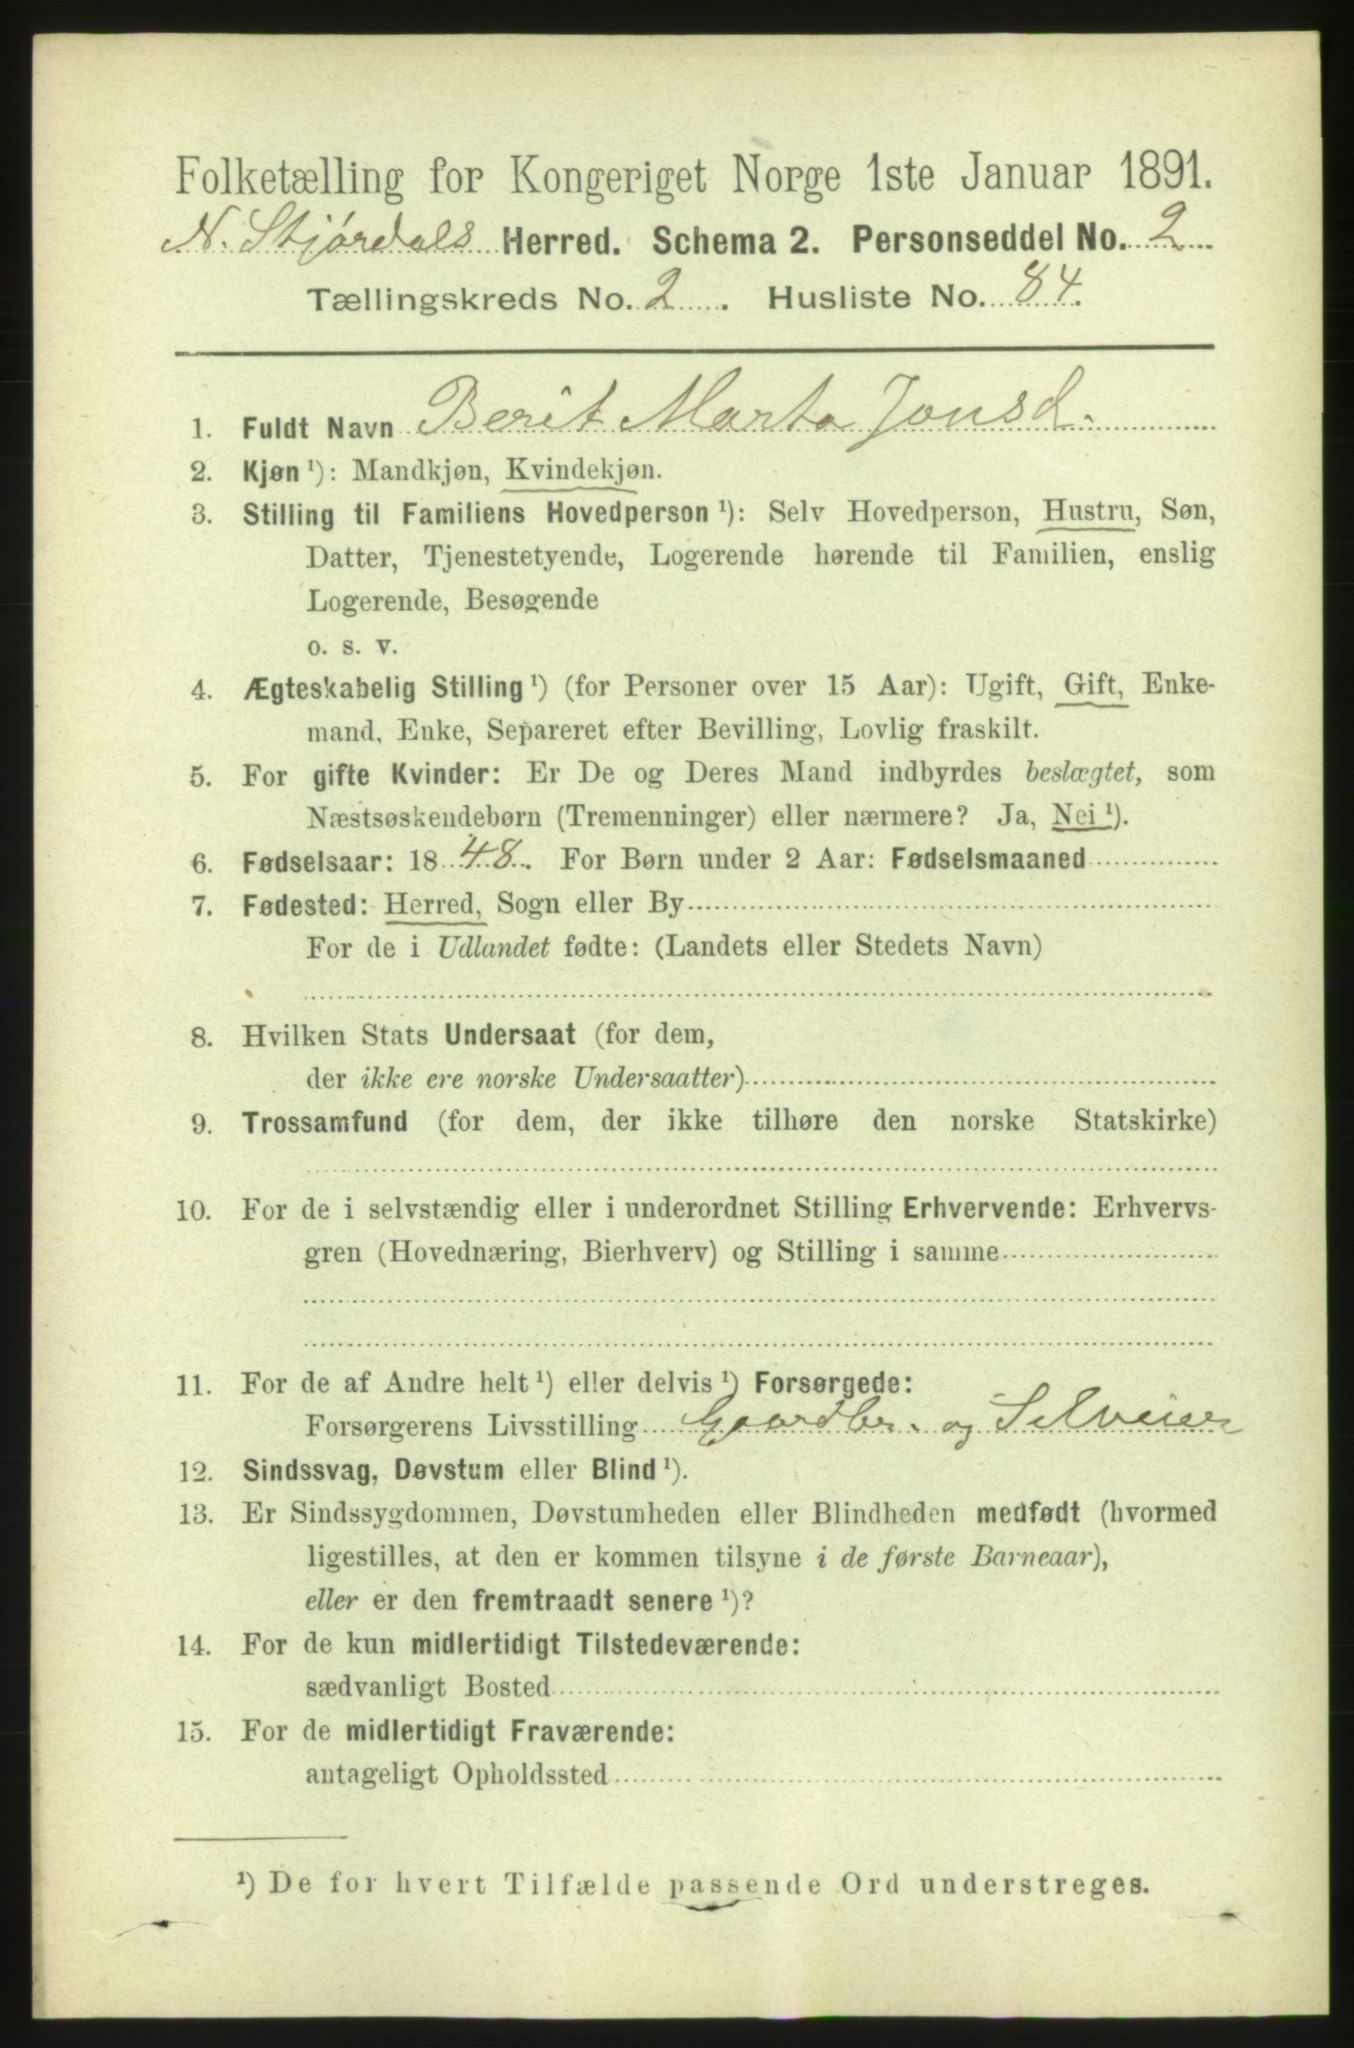 Folketælling for Kongeriget Norge 1ste Januar 1891.
N. Stjørdals Herred. Schema 2. Personseddel No. 2
Tællingskreds No. 2. Husliste No. 84.
1. Fuldt Navn Berit Marta Jonsd.
2. Kjøn ¹): Mandkjøn, Kvindekjøn.
3. Stilling til Familiens Hovedperson ¹): Selv Hovedperson, Hustru, Søn,
Datter, Tjenestetyende, Logerende hørende til Familien, enslig
Logerende, Besøgende
o. s. v.
4. Ægteskabelig Stilling ¹) (for Personer over 15 Aar): Ugift, Gift, Enke-
mand, Enke, Separeret efter Bevilling, Lovlig fraskilt.
5. For gifte Kvinder: Er De og Deres Mand indbyrdes beslægtet, som
Næstsøskendebørn (Tremenninger) eller nærmere? Ja, Nei ¹).
6. Fødselsaar: 1848. For Børn under 2 Aar: Fødselsmaaned
7. Fødested: Herred, Sogn eller By
For de i Udlandet fødte: (Landets eller Stedets Navn)
8. Hvilken Stats Undersaat (for dem,
der ikke ere norske Undersaatter)
9. Trossamfund (for dem, der ikke tilhøre den norske Statskirke)
10. For de i selvstændig eller i underordnet Stilling Erhvervende: Erhvervs-
gren (Hovednæring, Bierhverv) og Stilling i samme
11. For de af Andre helt ¹) eller delvis ¹) Forsørgede:
Forsørgerens Livsstilling Gaardbr. og Selveier
12. Sindssvag, Døvstum eller Blind ¹).
13. Er Sindssygdommen, Døvstumheden eller Blindheden medfødt (hvormed
ligestilles, at den er kommen tilsyne i de første Barneaar),
eller er den fremtraadt senere ¹)?
14. For de kun midlertidigt Tilstedeværende:
sædvanligt Bosted
15. For de midlertidigt Fraværende:
antageligt Opholdssted
¹) De for hvert Tilfælde passende Ord understreges.